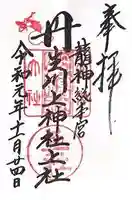 奉拝
龍神総本宮
丹生川上神社上社
令和元年十一月廿四日